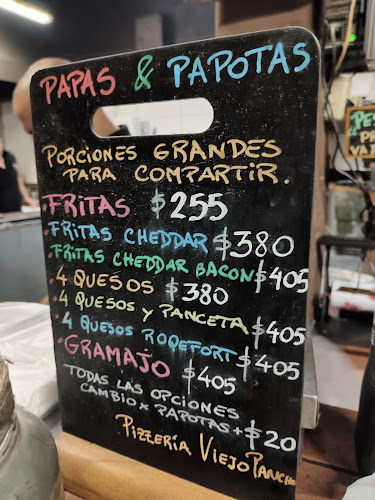 PAPAS & PAPOTAS
PORCIONES GRANDES
PARA COMPARTIR.
·FRITAS $255
·FRITAS CHEDDAR $380
·FRITAS CHEDDAR BACON $405
·4 QUESOS $380
·4 QUESOS Y PANCETA $405
·4 QUESOS ROQEFORT $405
·GRAMAJO $405
TODAS LAS OPCIONES
CAMBIO X PAPOTAS + $20
PIZZERÍA VIEJO PANCHO